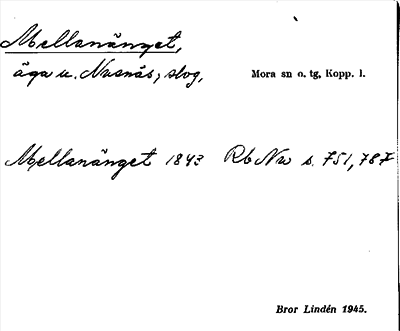 Mellanänget,
äga u. Nusnäs, skog,
Mora sn o. tg, Kopp. l.
Mellanänget 1843 Rb Nu s. 751, 787
Bror Lindén 1945.